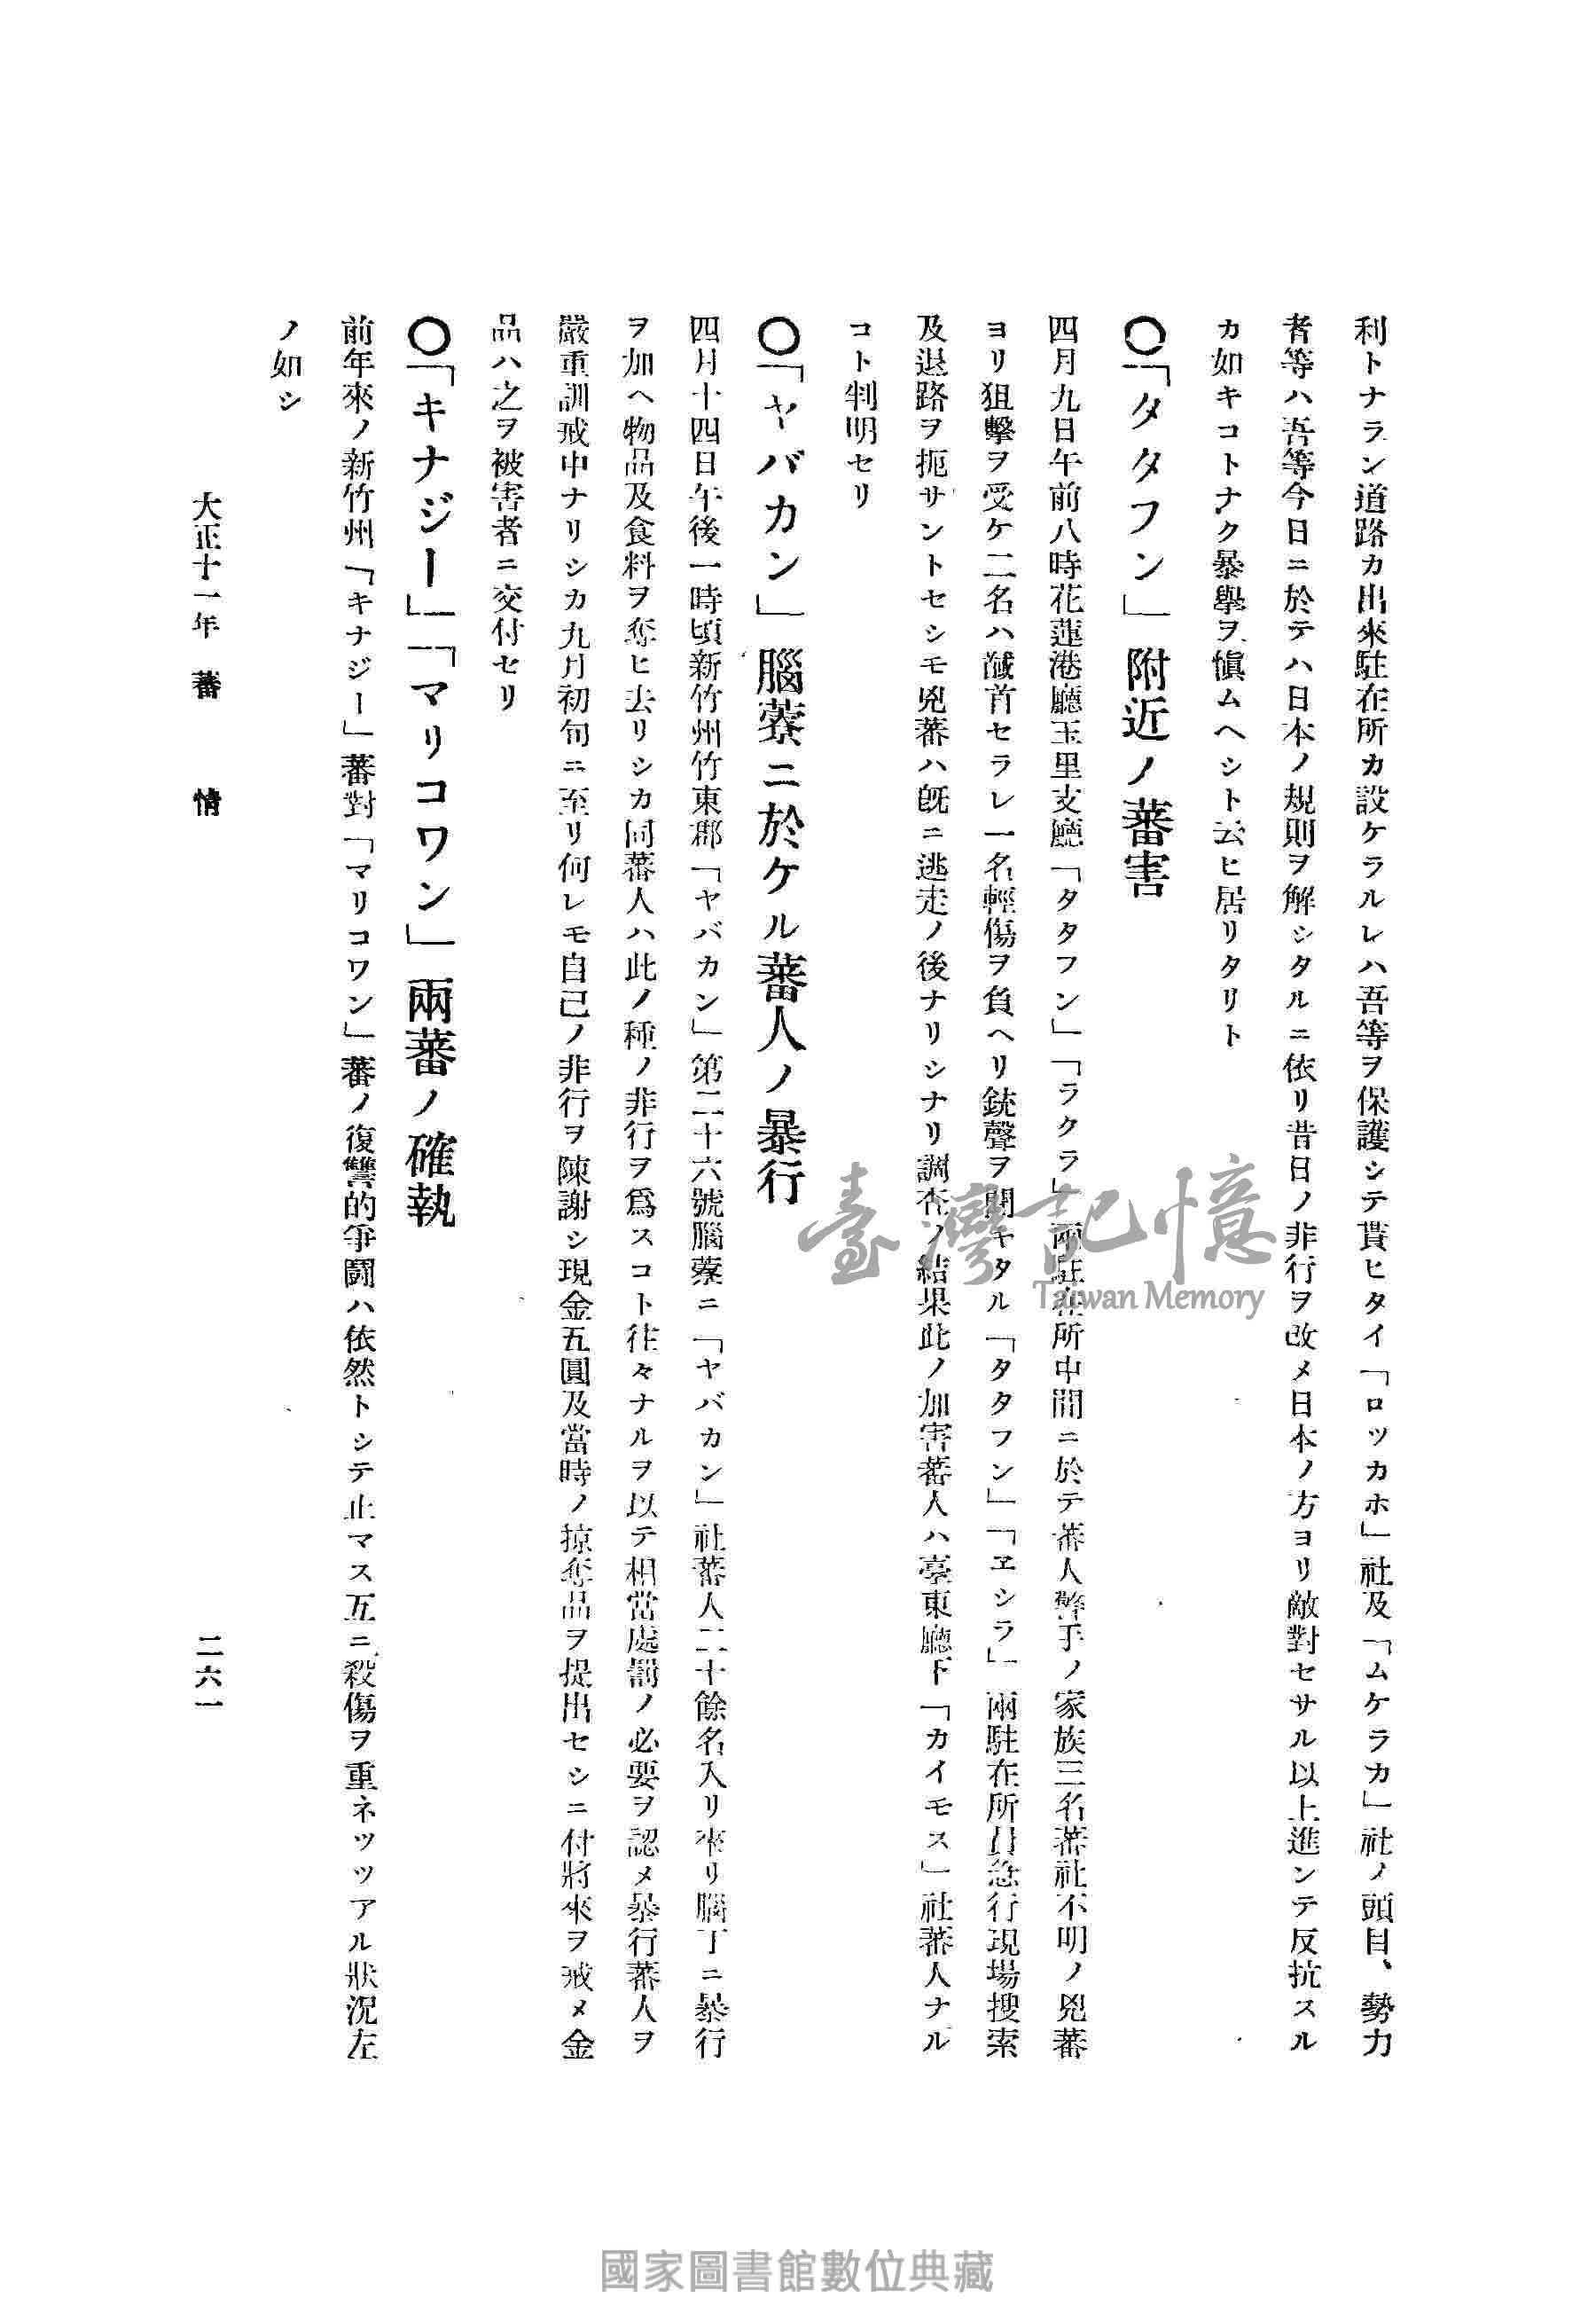 利トナラン道路カ出來駐在所カ設ケラルレハ吾等ヲ保護シテ貰ヒタイ「ロッカホ」社及「ムケラカ」社ノ頭目、勢力
者等ハ吾等今日ニ於テハ日本ノ規則ヲ解シタルニ依リ昔日ノ非行ヲ改メ日本ノ方ヨリ敵對セサル以上進ンテ反抗スル
カ如キコトナク暴擧ヲ愼ムヘシト云ヒ居リタリト
〇「タタフン」附近ノ蕃害
四月九日午前八時花蓮港廳玉里支廳「タタフン」「ラクラ」兩駐在所中間ニ於テ蕃人警手ノ家族三名蕃社不明ノ兇蕃
ヨリ狙擊ヲ受ケ二名ハ馘首セラレ一名輕傷ヲ負ヘリ銃聲ヲ聞キタル「タタフン」「ヱシラ」兩駐在所員急行現場搜索
及退路ヲ扼サントセシモ兇蕃ハ既ニ逃走ノ後ナリシナリ調査ノ結果此ノ加害蕃人ハ臺東廳下「カイモス」社蕃人ナル
コト判明セリ
〇「ヤバカン」腦藔ニ於ケル蕃人ノ暴行
四月十四日午後一時頃新竹州竹東郡「ヤバカン」第二十六號腦藔ニ「ヤバカン」社蕃人二十餘名入リ來リ腦丁ニ暴行
ヲ加ヘ物品及食料ヲ奪ヒ去リシカ同蕃人ハ此ノ種ノ非行ヲ爲スコト往々ナルヲ以テ相當處罰ノ必要ヲ認メ暴行蕃人ヲ
嚴重訓戒中ナリシカ九月初旬ニ至リ何レモ自己ノ非行ヲ陳謝シ現金五圓及當時ノ掠奪品ヲ提出セシニ付將來ヲ戒メ金
品ハ之ヲ被害者ニ交付セリ
〇「キナジー」「マリコワン」兩蕃ノ確執
前年來ノ新竹州「キナジー」蕃對「マリコワン」蕃ノ復讐的爭鬪ハ依然トシテ止マス互ニ殺傷ヲ重ネツツアル狀況左
ノ如シ
大正十一年 蕃 情
二六一
臺灣記憶
Taiwan Memory
國家圖書館數位典藏